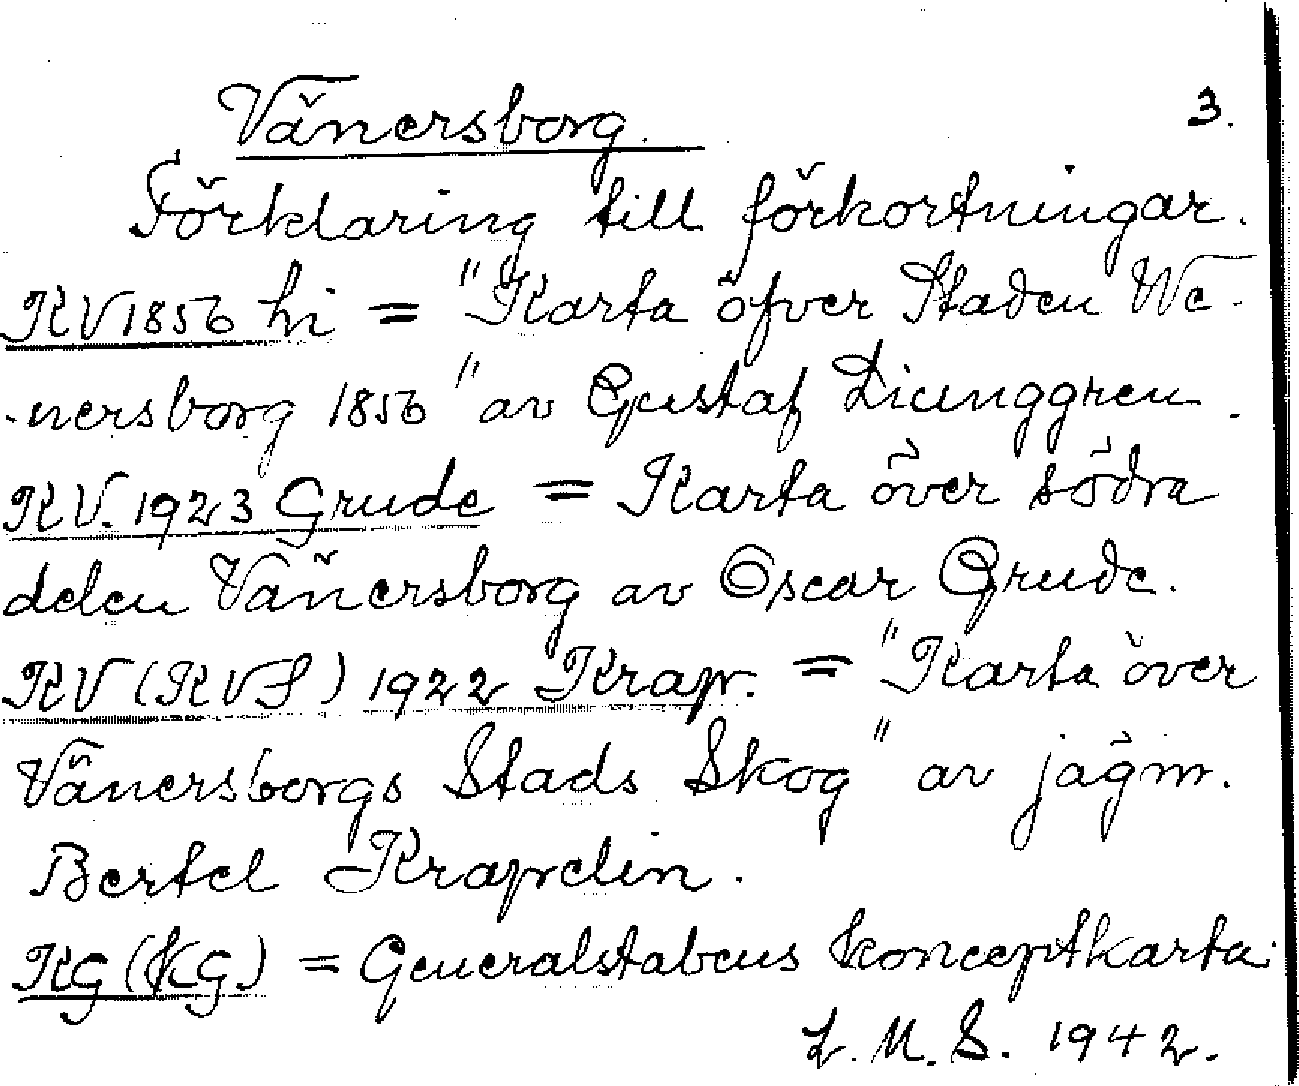 Vänersborg. 3.
Förklaring till förkortningar.
KV 1856 Li = "Karta öfver Staden We-
-nersborg 1856" av Gustaf Liunggren.
KV. 1923 Grude = Karta över södra
delen Vänersborg av Oscar Grude.
KV (KVS) 1922 Krap. = "Karta över
Vänersborgs Stads Skog" av jägm.
Bertel Krapelin.
KG (KG) = Generalstabens konceptkarta.
L. M. S. 1942.